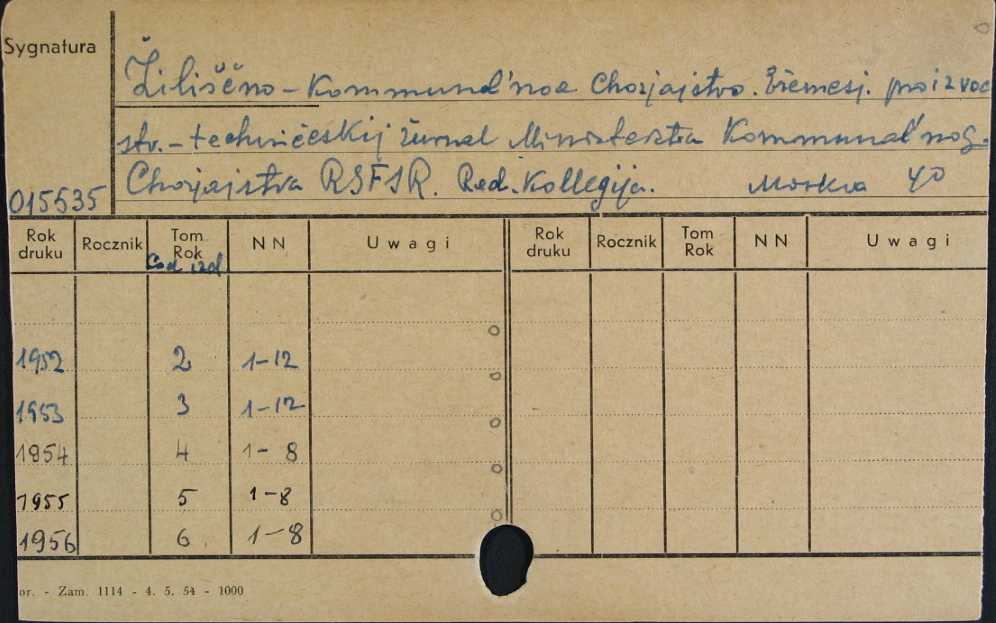 Sygnatura
Žiliščno-Kommunal'noe Chozjajstvo. Ežemesj. proizvod
stv.-techničeskij žurnal Ministerstva Kommunal'nog.
Chozjajstva RSFSR. Red. Kollegija. Moskva 40
015535
Rok druku Rocznik Tom Rok NN Uwagi Rok druku Rocznik Tom Rok NN Uwagi
God izd
1952 2 1-12
1953 3 1-12
1954 4 1-8
1955 5 1-8
1956 6 1-8
or. - Zam. 1114 - 4. 5. 54 - 1000